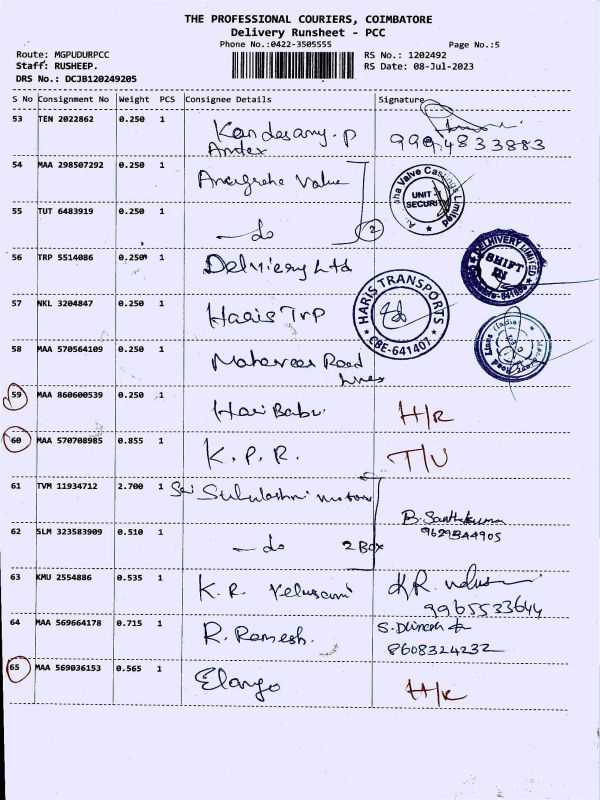 THE PROFESSIONAL COURIERS, COIMBATORE
Delivery Runsheet - PCC
Phone No.:0422-3505555
Page No.:5
Route: MGPUDURPCC
RS No.: 1202492
Staff: RUSHEEP.
RS Date: 08-Jul-2023
DRS No.: DCJB120249205
S No Consignment No Weight PCS Consignee Details Signature
53 TEN 2022862 0.250 1 Kandasamy.P
Andex
9994833883
54 MAA 298507292 0.250 1 Anugraha Valve
Valve Castings Limited
UNIT
SECURITY
55 TUT 6483919 0.250 1 do 2
56 TRP 5514086 0.250 1 Delhivery Ltd
DELHIVERY LIMITED
SHIFT
57 NKL 3204847 0.250 1 Haris Trp
HARIS TRANSPORTS
CBE-641407
58 MAA 570564109 0.250 1 Mahaveer Road
Lines
Lines (India
59 MAA 860600539 0.250 1 Hari Babu H/R
60 MAA 570708985 0.855 1 K. P. R. T/U
61 TVM 11934712 2.700 1 Sri Subulashmi motors
B. Santhakumar
62 SLM 323583909 0.510 1 do 2 Box
63 KMU 2554886 0.535 1 K. R. Velusami K.R.
9965533644
64 MAA 569664178 0.715 1 R. Ramesh. S. Dinesh
8608324232
65 MAA 569036153 0.565 1 Elango H/R